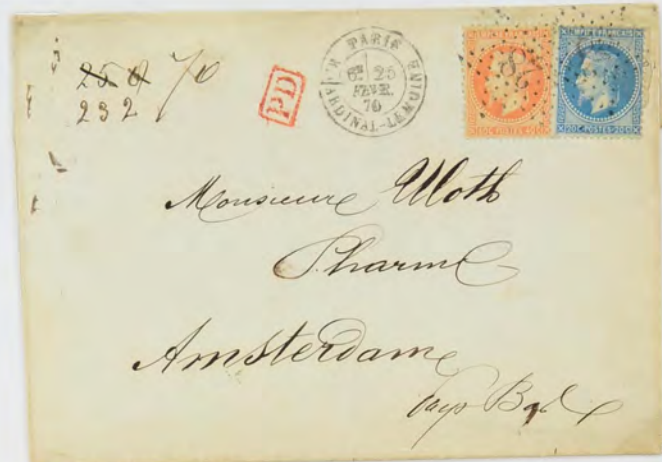 25 8 70
232
PD
R. PARIS CARDINAL-LEMOINE
6E 25
FEVR.
70
28
EMPIRE FRANÇAIS
40C POSTES 40C
EMPIRE FRANÇAIS
20C POSTES 20C
Monsieur Uloth
Pharmc
Amsterdame
Pays Bas